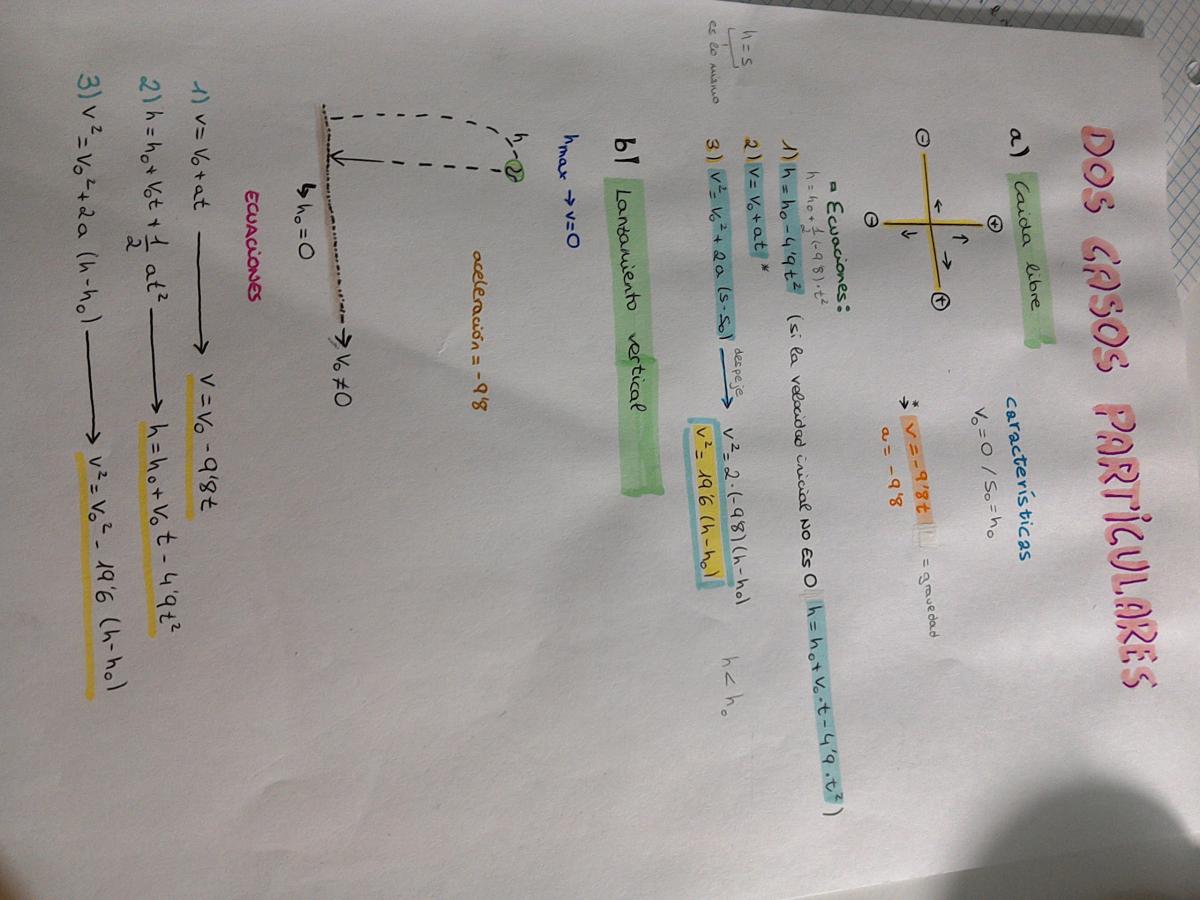 DOS CASOS PARTICULARES
a) Caida libre
características
V₀=0 / S₀=h₀
⊕
⊖
⊕
⊖
* v=-9'8t = gravedad
→ a=-9'8
- Ecuaciones:
h=h₀+½(-9'8)·t²
1) h=h₀-4'9t² (si la velocidad inicial NO ES 0 h=h₀+V₀·t-4'9·t²)
2) V=V₀+at *
h=s
es lo mismo
3) V²=V₀²+2a (s-s₀) despeje → V²=2·(-9'8)(h-h₀) h<h₀
V²=19'6 (h-h₀)
b) Lanzamiento vertical
hmax → v=0
h
aceleración=-9'8
↳ h₀=0
→ V₀≠0
ECUACIONES
1) V=V₀+at → V=V₀-9'8t
2) h=h₀+V₀t+½at² → h=h₀+V₀t-4'9t²
3) V²=V₀²+2a (h-h₀) → V²=V₀²-19'6 (h-h₀)